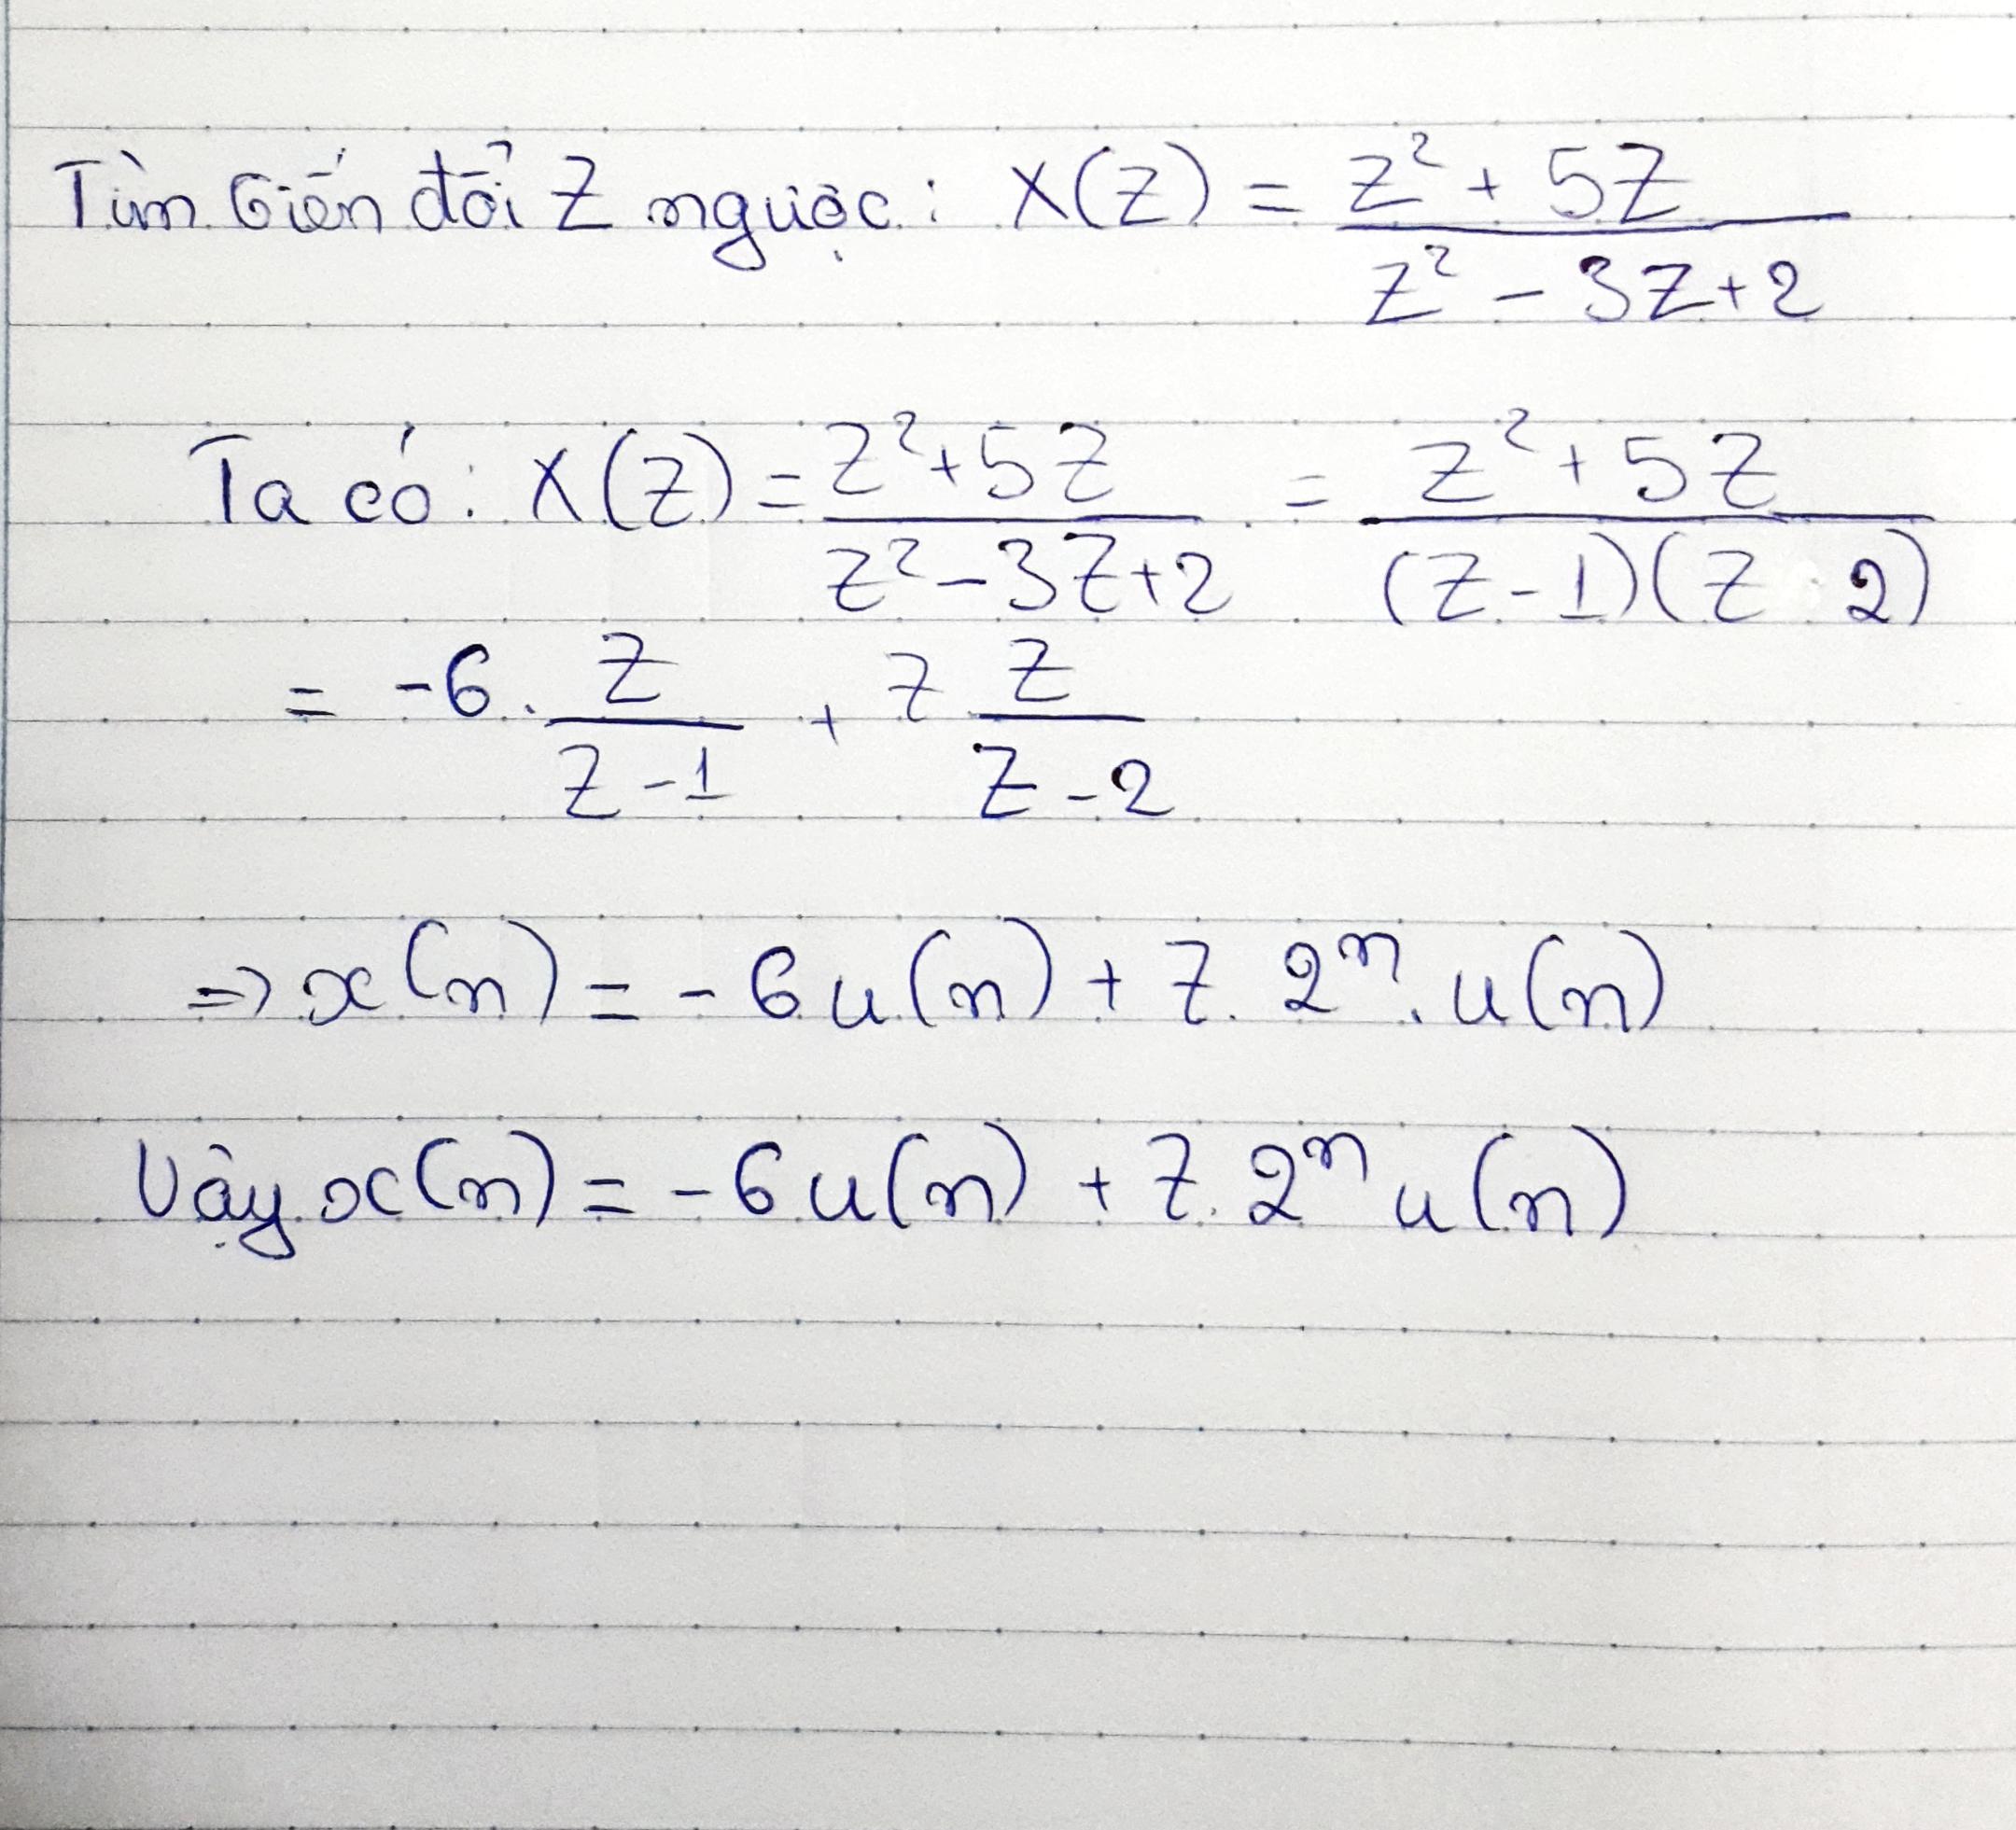 Tìm biến đổi Z ngược: X(Z) = (Z² + 5Z)/(Z² - 3Z + 2)
Ta có: X(Z) = (Z² + 5Z)/(Z² - 3Z + 2) = (Z² + 5Z)/((Z - 1)(Z 2))
= -6 . Z/(Z - 1) + 7 Z/(Z - 2)
=> x(n) = - 6 u(n) + 7. 2ⁿ . u(n)
Vậy x(n) = - 6 u(n) + 7. 2ⁿ u(n)